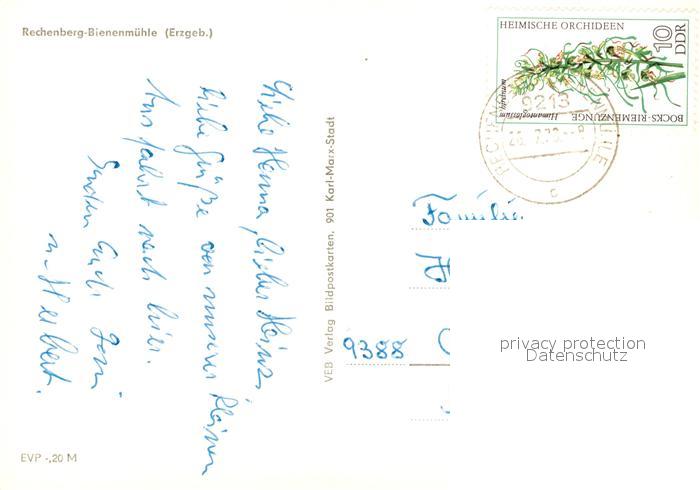 Rechenberg-Bienenmühle (Erzgeb.)
HEIMISCHE ORCHIDEEN
10
DDR
BOCKS-RIEMENZUNGE
Himantoglossum hircinum
9213
Liebe Hanna, lieber Heinz,
liebe Grüße von unserer kleinen
Ausfahrt nach hier.
Senden Euch
u. Herbert.
VEB Verlag Bildpostkarten, 901 Karl-Marx-Stadt
Familie
9388
privacy protection
Datenschutz
EVP -,20 M